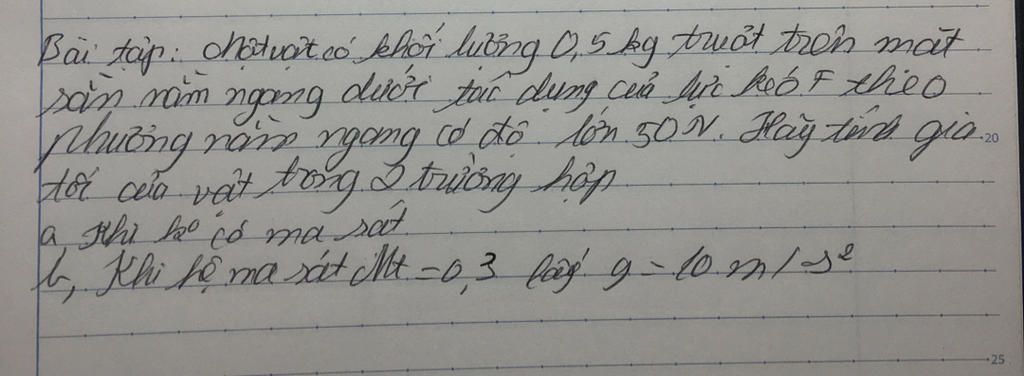 Bài tập: một vật có khối lượng 0,5 kg trượt trên mặt
sàn nằm ngang dưới tác dụng của lực kéo F theo
phương nằm ngang có độ lớn 50N. Hãy tính gia
20
tốc của vật trong 2 trường hợp
a, Khi ko có ma sát
b, Khi hệ ma sát Mt = 0,3 lấy g = 10 m/s²
25